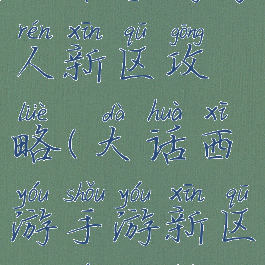 rén xīn qū gōng
人新区攻
lüè dà huà xī
略(大话西
yóu shǒu yóu xīn qū
游手游新区